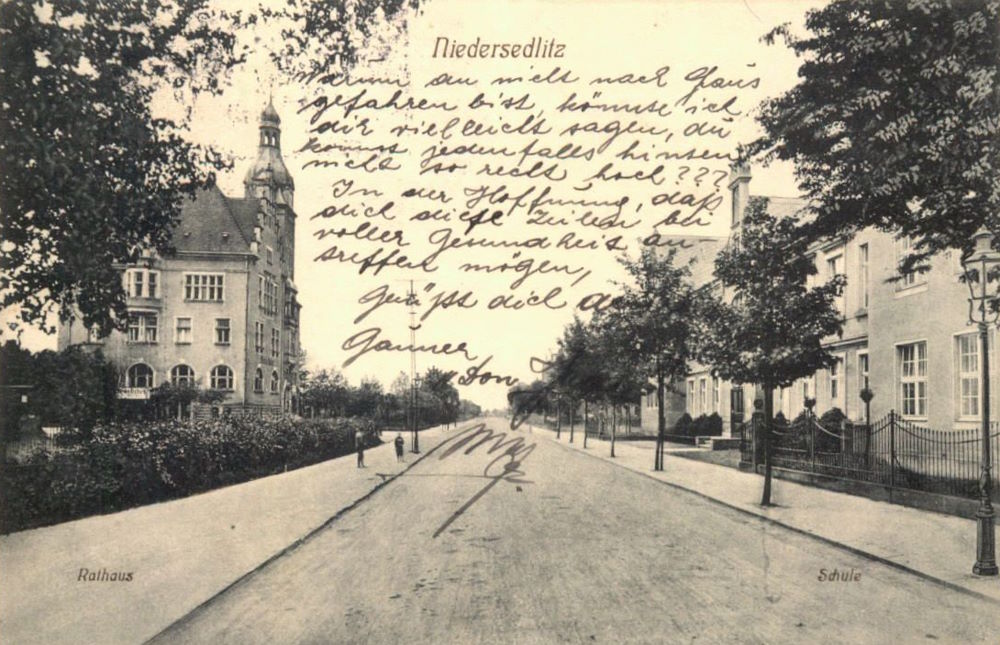 Niedersedlitz
Warum du nicht nach Haus
gefahren bist, könnte ich
dir vielleicht sagen, du
kommst jedenfalls hinten
nicht so recht hoch???
In der Hoffnung, daß
dich diese Zeilen bei
voller Gesundheit an
treffen mögen,
grüßt dich
Rathaus
Schule